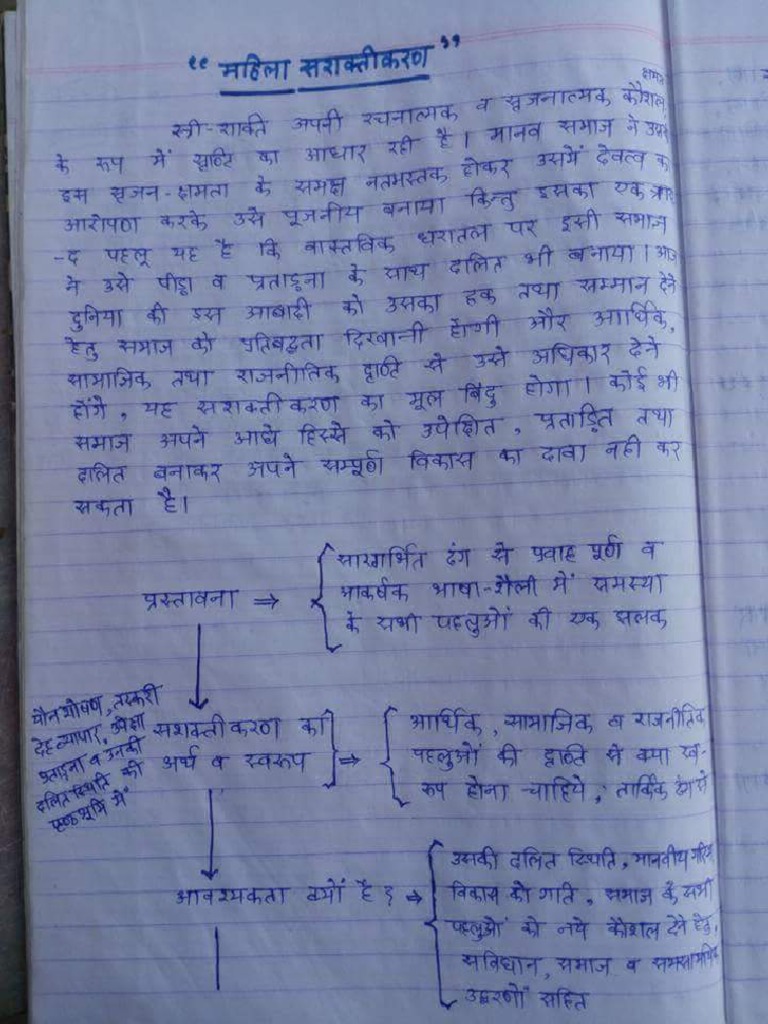 “ महिला सशक्तीकरण ”
क्षमता
स्त्री-शक्ति अपनी रचनात्मक व सृजनात्मक कौशल
के रूप में सृष्टि का आधार रही है। मानव समाज ने उसकी
इस सृजन-क्षमता के समक्ष नतमस्तक होकर उसमें देवत्व का
आरोपण करके उसे पूजनीय बनाया किन्तु इसका एक
-द पहलू यह है कि वास्तविक धरातल पर इसी समाज
ने उसे पीड़ा व प्रताड़ना के साथ दलित भी बनाया। आज
दुनिया की इस आबादी को उसका हक तथा सम्मान देने
हेतु समाज को प्रतिबद्धता दिखानी होगी और आर्थिक,
सामाजिक तथा राजनीतिक दृष्टि से उसे अधिकार देने
होंगे, यह सशक्तीकरण का मूल बिंदु होगा। कोई भी
समाज अपने आधे हिस्से को उपेक्षित, प्रताड़ित तथा
दलित बनाकर अपने सम्पूर्ण विकास का दावा नही कर
सकता है।
प्रस्तावना ⇒ { सारगर्भित ढंग से प्रवाह पूर्ण व
आकर्षक भाषा-शैली में समस्या
के सभी पहलुओं की एक झलक
यौन शोषण, तस्करी
देह व्यापार,
प्रताड़ना व उनकी
दलित स्थिति की
पृष्ठभूमि में
सशक्तीकरण का
अर्थ व स्वरूप ] ⇒ { आर्थिक, सामाजिक व राजनीतिक
पहलुओं की दृष्टि से क्या स्व-
रूप होना चाहिये, तार्किक ढंग से
आवश्यकता क्यों है ? ⇒ { उसकी दलित स्थिति, मानवीय गरिमा,
विकास को गति, समाज के सभी
पहलुओं को नये कौशल देने हेतु,
संविधान, समाज व समसामयिक
उद्धरणों सहित